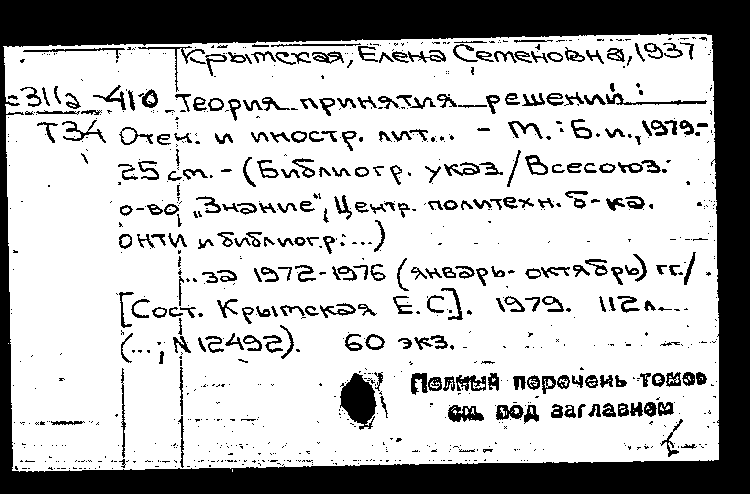 Крымская, Елена Семеновна, 1937
с311а-410 Теория принятия решений:
Т34 Отеч. и иностр. лит... - М.: Б.и., 1979.-
25 см. - (Библиогр. указ./Всесоюз.
о-во „Знание", Центр. политехн. б-ка.
ОНТИ и библиогр.:...)
...за 1972-1976 (январь-октябрь) гг./
[Сост. Крымская Е.С.]. 1979. 112 л.
(...; N 12492). 60 экз.
Полный перечень томов
см. под заглавием